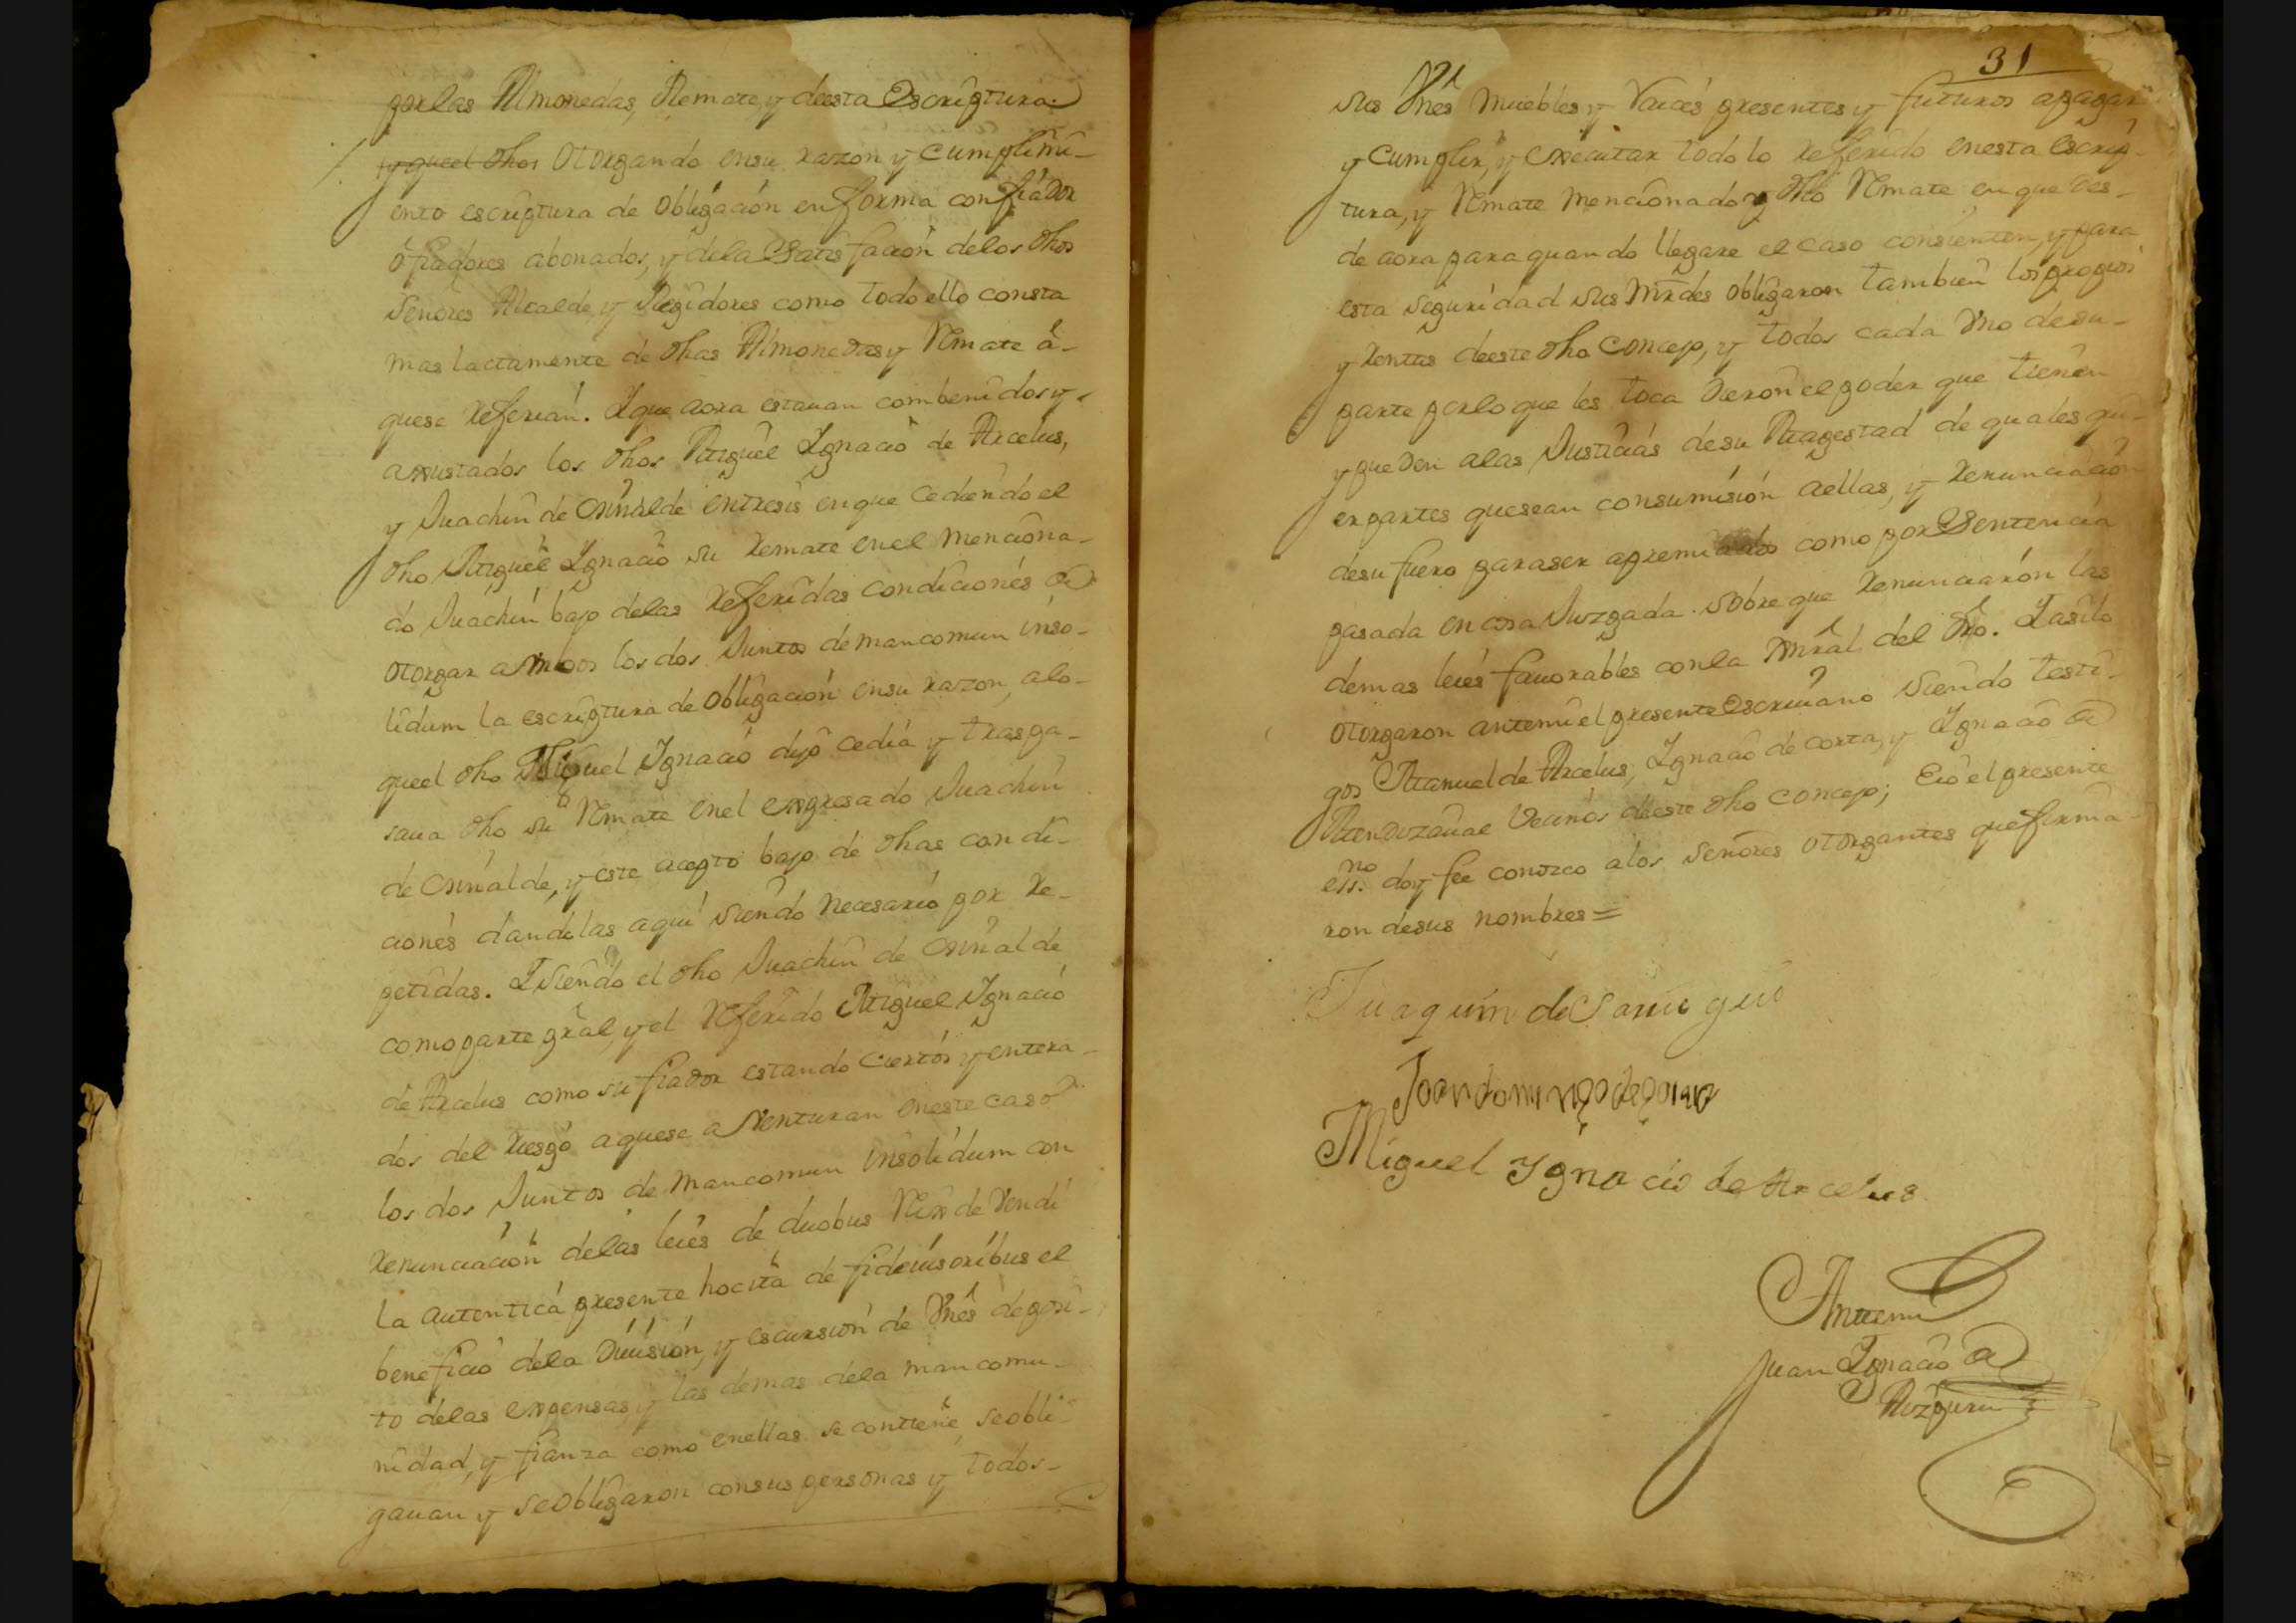 por las Almonedas, Remate, y deesta Escriptura
y que el dhos Otorgando ensu razon y cumplimi-
ento escriptura de obligación en forma con fiador
ô fiadores abonados, y dela Satisfación delos dhos
Señores Alcalde, y Regidores como todo ello consta
mas lactamente de dhas Almonedas y Rmate â-
quese referian. Y que aora estauan combenidos y
axustados los dhos Miguel Ignacio de Arcelus,
y Juachin de entresis en que cediendo el
dho Miguel Ignacio su remate enel menciona-
do Juachin bajo delas referidas condiciones de
otorgar ambos los dos Juntos de mancomun inso-
lidum la escriptura de obligación ensu razon, alo-
queel dho Miguel Ignacio dijo cedia y traspa-
saua dho su Rmate enel expresado Juachin
de y este acepto bajo de dhas condi-
ciones dandolas aqui siendo necesario por re-
petidas. Y siendo el dho Juachin de
como parte pral, y el referido Miguel Ignacio
de Arcelus como su fiador estando ciertos y entera-
dos del riesgo aquese aventuran eneste caso
los dos Juntos de mancomun insolidum con
renunciación delas leies de duobus Rex de vendi
la autentica presente hocita de fideiusoribus el
beneficio dela Diuisión, y escursión de Vnes deposi-
to delas expensas y las demas dela mancomu-
nidad, y fianza como enellas se contiene, seobli-
gauan y seobligaron consus personas y todos-
31
sus Vnes muebles y Raices presentes y futuros apagar
y cumplir, y executar todo lo referido enesta escrip-
tura, y Rmate mencionado y dho Rmate en que des-
de aora para quando llegare el caso consienten, y para
esta seguridad sus mrdes obligaron tambien los propios
y rentas deeste dho concejo, y todos cada vno desu-
parte porlo que les toca dieron el poder que tienen
y pueden alas Justicias desu Magestad de quales qui-
er partes quesean consumisión aellas, y renunciación
desu fuero paraser apremiados como por Sentencia
pasada en cosa Juzgada sobre que renunciarón las
demas leies fauorables conla gnral del dro. Y asilo
otorgaron antemi el presente Escriuano siendo testi-
gos Manuel de Arcelus, Ignacio de corta, y Ignacio de
Vecinos deeste dho concejo; Eio el presente
essno. doy fee conozco alos Señores otorgantes que firma-
ron desus nombres =
Juaquin de
Joan domingo de
Miguel Ygnacio de Arcelus
Antemi
Juan Ignacio de